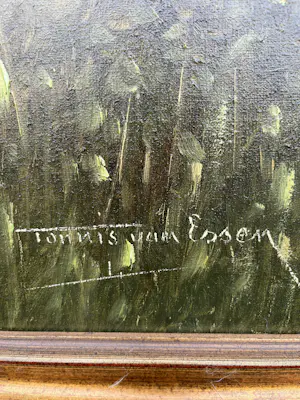 Tonnis van Essen